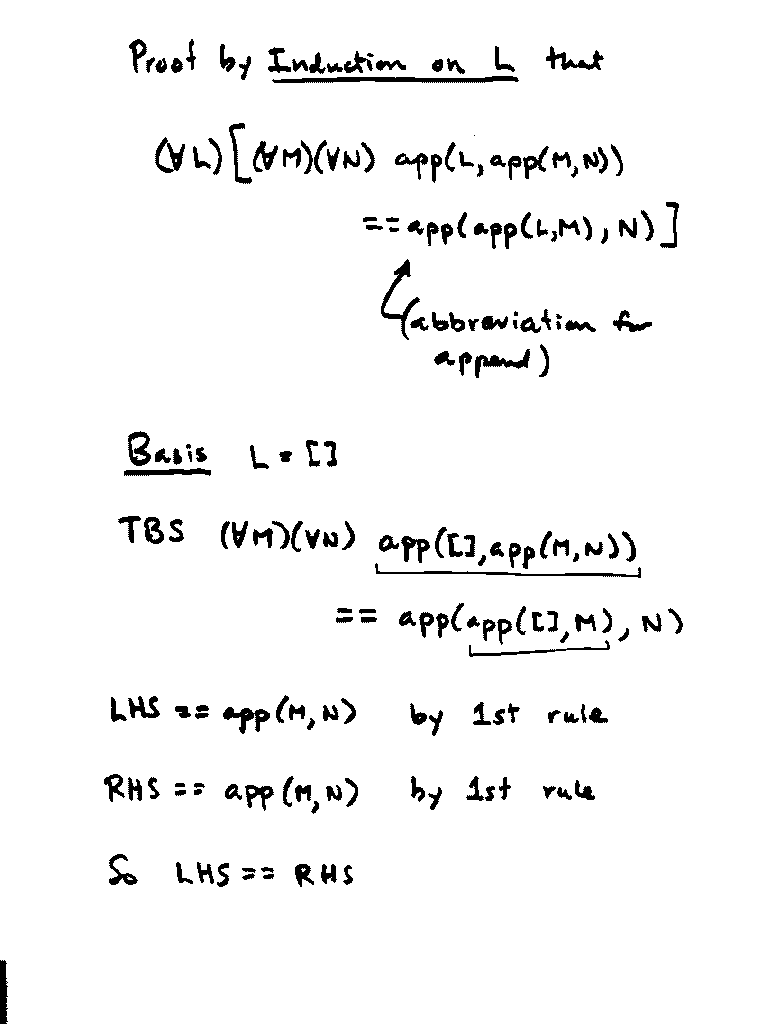 Proof by Induction on L that
(∀L)[(∀M)(∀N) app(L, app(M, N))
== app(app(L, M), N)]
(abbreviation for
append)
Basis L = []
TBS (∀M)(∀N) app([], app(M, N))
== app(app([], M), N)
LHS == app(M, N) by 1st rule
RHS == app(M, N) by 1st rule
So LHS == RHS